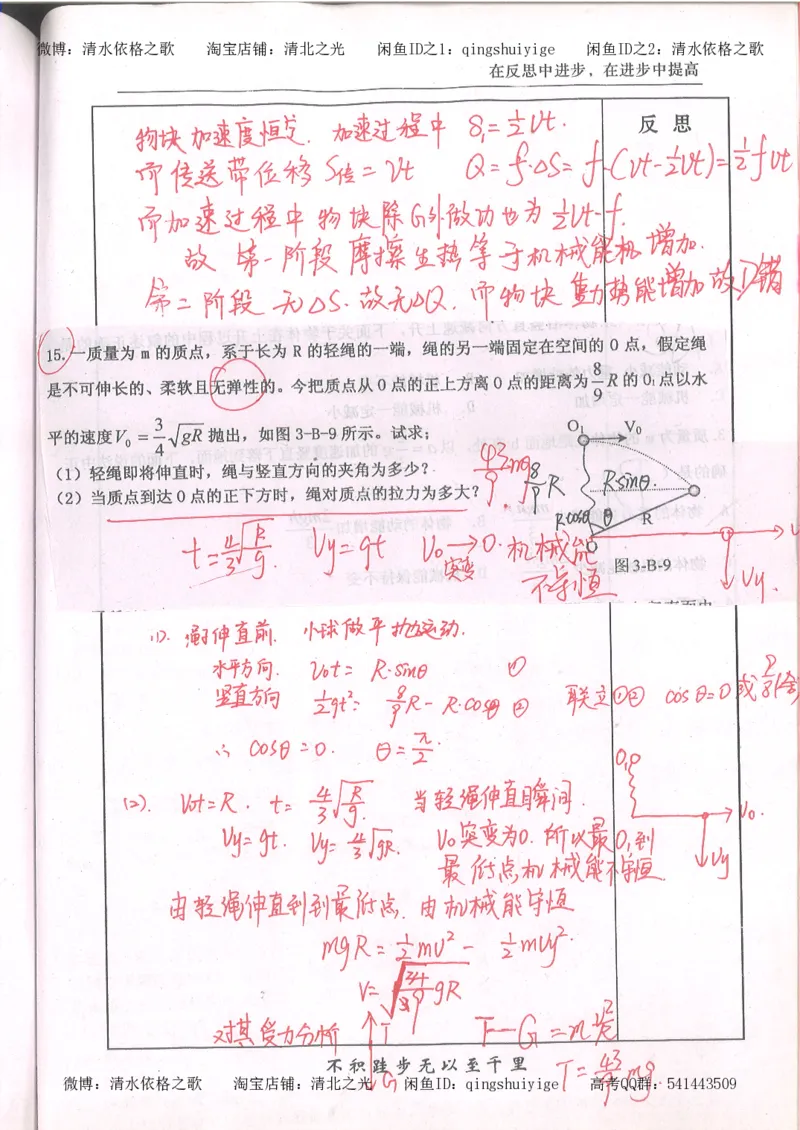 微博:清水依格之歌 淘宝店铺:清北之光 闲鱼ID之1:qingshuiyige 闲鱼ID之2:清水依格之歌
在反思中进步,在进步中提高
反 思
物块加速度恒定. 加速过程中 S₁=½Vt.
而传送带位移 S传=Vt Q=f·ΔS=f·(Vt-½Vt)=½fVt
而加速过程中物块除G外做功也为½Vt·f.
故 第一阶段摩擦生热等于机械能 增加.
第二阶段 无ΔS.故无ΔQ. 而物块重力势能增加故D错
15.一质量为 m 的质点,系于长为 R 的轻绳的一端,绳的另一端固定在空间的 O 点,假定绳
是不可伸长的、柔软且无弹性的。今把质点从 O 点的正上方离 O 点的距离为 8/9 R 的 O₁ 点以水
平的速度V₀ = 3/4 √gR 抛出,如图 3-B-9 所示。试求;
(1)轻绳即将伸直时,绳与竖直方向的夹角为多少?
(2)当质点到达 O 点的正下方时,绳对质点的拉力为多大?
43/9 mg
O₁ V₀
8/9 R Rsinθ.
Rcosθ θ R
O
Vy.
图 3-B-9
t=4/3 √R/g. Vy=gt V₀→0. 机械能
突变 不守恒
(1). 绳伸直前. 小球做平抛运动.
水平方向. V₀t= R·sinθ ①
竖直方向 ½gt²= 8/9 R- R·cosθ ② 联立①② cosθ=0或
∴ cosθ=0. θ=π/2.
(2). V₀t=R. t= 4/3 √R/g. 当轻绳伸直瞬间.
Vy=gt. Vy= 4/3 √gR. V₀突变为0. 所以最 O₁到
最低点机械能不守恒
O₁
V₀.
Vy
由轻绳伸直到到最低点. 由机械能守恒
mgR=½mv²- ½mvy².
V=√34/9 gR
对其受力分析 T G T-G=m v²/R
T=43/9 mg
不积跬步无以至千里
微博:清水依格之歌 淘宝店铺:清北之光 闲鱼ID:qingshuiyige 高考QQ群:541443509